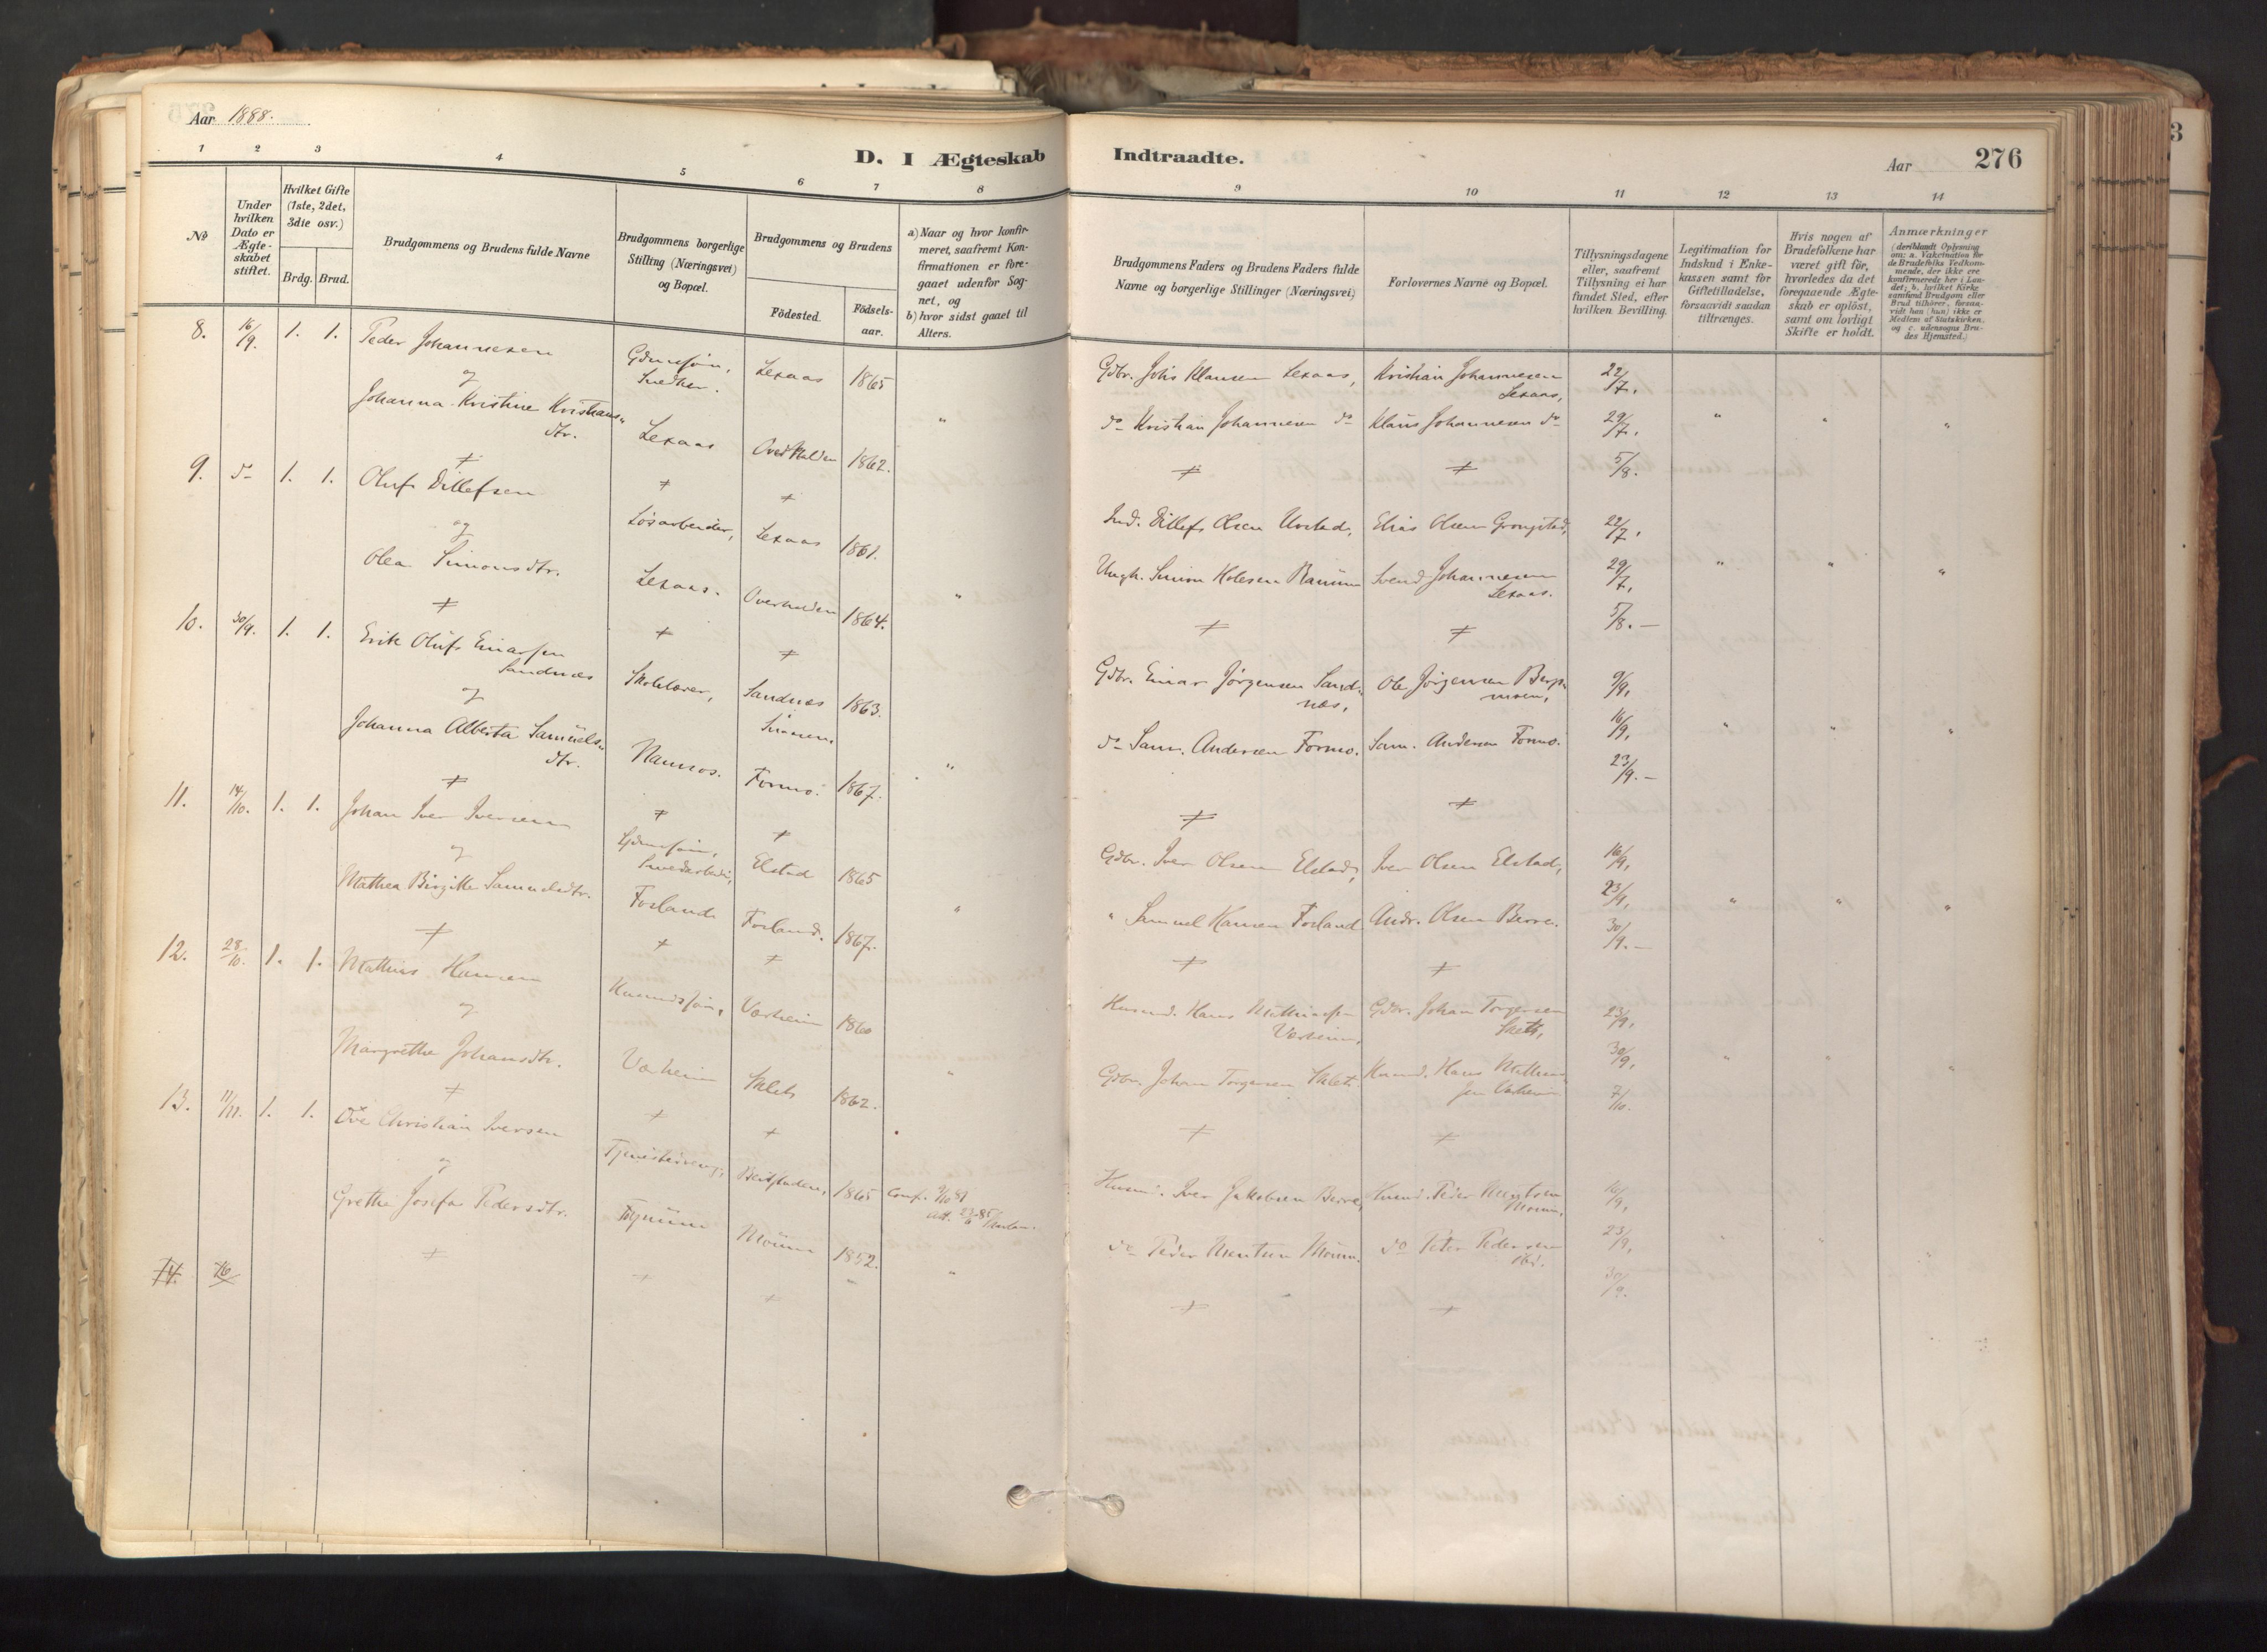 Aar 1888.
D. I Ægteskab Indtraadte.
Aar
276
1 2 3 4 5 6 7 8 9 10 11 12 13 14
No
Under hvilken Dato er Ægteskabet stiftet.
Hvilket Gifte (1ste, 2det, 3die osv.)
Brdg. Brud.
Brudgommens og Brudens fulde Navne
Brudgommens borgerlige Stilling (Næringsvei) og Bopæl.
Brudgommens og Brudens
Födested.
Födselsaar.
a) Naar og hvor konfirmeret, saafremt Konfirmationen er foregaaet udenfor Sognet, og
b) hvor sidst gaaet til Alters.
Brudgommens Faders og Brudens Faders fulde Navne og borgerlige Stillinger (Næringsvei)
Forlovernes Navne og Bopæl.
Tillysningsdagene eller, saafremt Tillysning ei har fundet Sted, efter hvilken Bevilling.
Legitimation for Indskud i Enkekassen samt for Giftetilladelse, forsaavidt saadan tiltrænges.
Hvis nogen af Brudefolkene har været gift för, hvorledes da det foregaaende Ægteskab er oplöst, samt om lovligt Skifte er holdt.
Anmærkninger
(deriblandt Oplysning om: a. Vakcination for de Brudefolks Vedkommende, der ikke ere konfirmerede her i Landet; b. hvilket Kirkesamfund Brudgom eller Brud tilhörer, forsaavidt han (hun) ikke er Medlem af Statskirken, og c. udensogns Brudes Hjemsted.)
8. 16/9. 1. 1. Peder Johannesen Lexaas 1865 Gdbr. Johs Klausen Lexaas, Kristian Johannesen Lexaas, 22/7.
og
Johanna Kristine Kristiansdtr. Lexaas 1862. " do Kristian Johannesen do Klaus Johannesen do 29/7. " " "
5/8.
9. do 1. 1. Oluf Dillefsen Lösarbeider, Lexaas 1861. Ind. Dillef Olsen Elias Olsen Grongstad, 22/7.
og
Olea Simonsdtr. Lexaas. Overhalden 1864. " Simon Svend Johannesen Lexaas. 29/7, " " "
5/8.—
10. 30/9. 1. 1. Erik Oluf Einarsen Sandnæs Skolelærer, Sandnæs 1863. Gdbr. Einar Jörgensen Sandnæs, Ole Jörgensen 9/9,
og
Johanna Alberta Samuelsdtr. Namsos. Formo. 1867. " do Sam. Andersen Formo. Sam. Andersen Formo. 16/9, " " "
23/9.—
11. 14/10. 1. 1. Johan Iver Iversen Elstad 1865 Gdbr. Iver Olsen Elstad, Iver Olsen Elstad, 16/9,
og
Mathea Birgitte Samuelsdtr. Fosland Fosland. 1867. " " Samuel Hansen Fosland Andr. Olsen Berre. 23/9, " " "
30/9.—
12. 28/10. 1. 1. Mathias Hansen Værheim 1860 Husmd. Hans Mathiassen Værheim, Gdbr. Johan Torgersen 23/9,
og
Margrethe Johansdtr. Værheim 1862. " Gdbr. Johan Torgersen Husmd. Hans 30/9, " " "
7/10.
13. 11/11. 1. 1. Ove Christian Iversen Beitstaden, 1865 Conf. Husmd. Iver Jakobsen Berre, Husmd. Peder 16/9,
og
Grethe Josefa Pedersdtr. Moum 1852. " do Peder Moum. do Peter Pedersen 23/9, " " "
30/9.
14. 16/